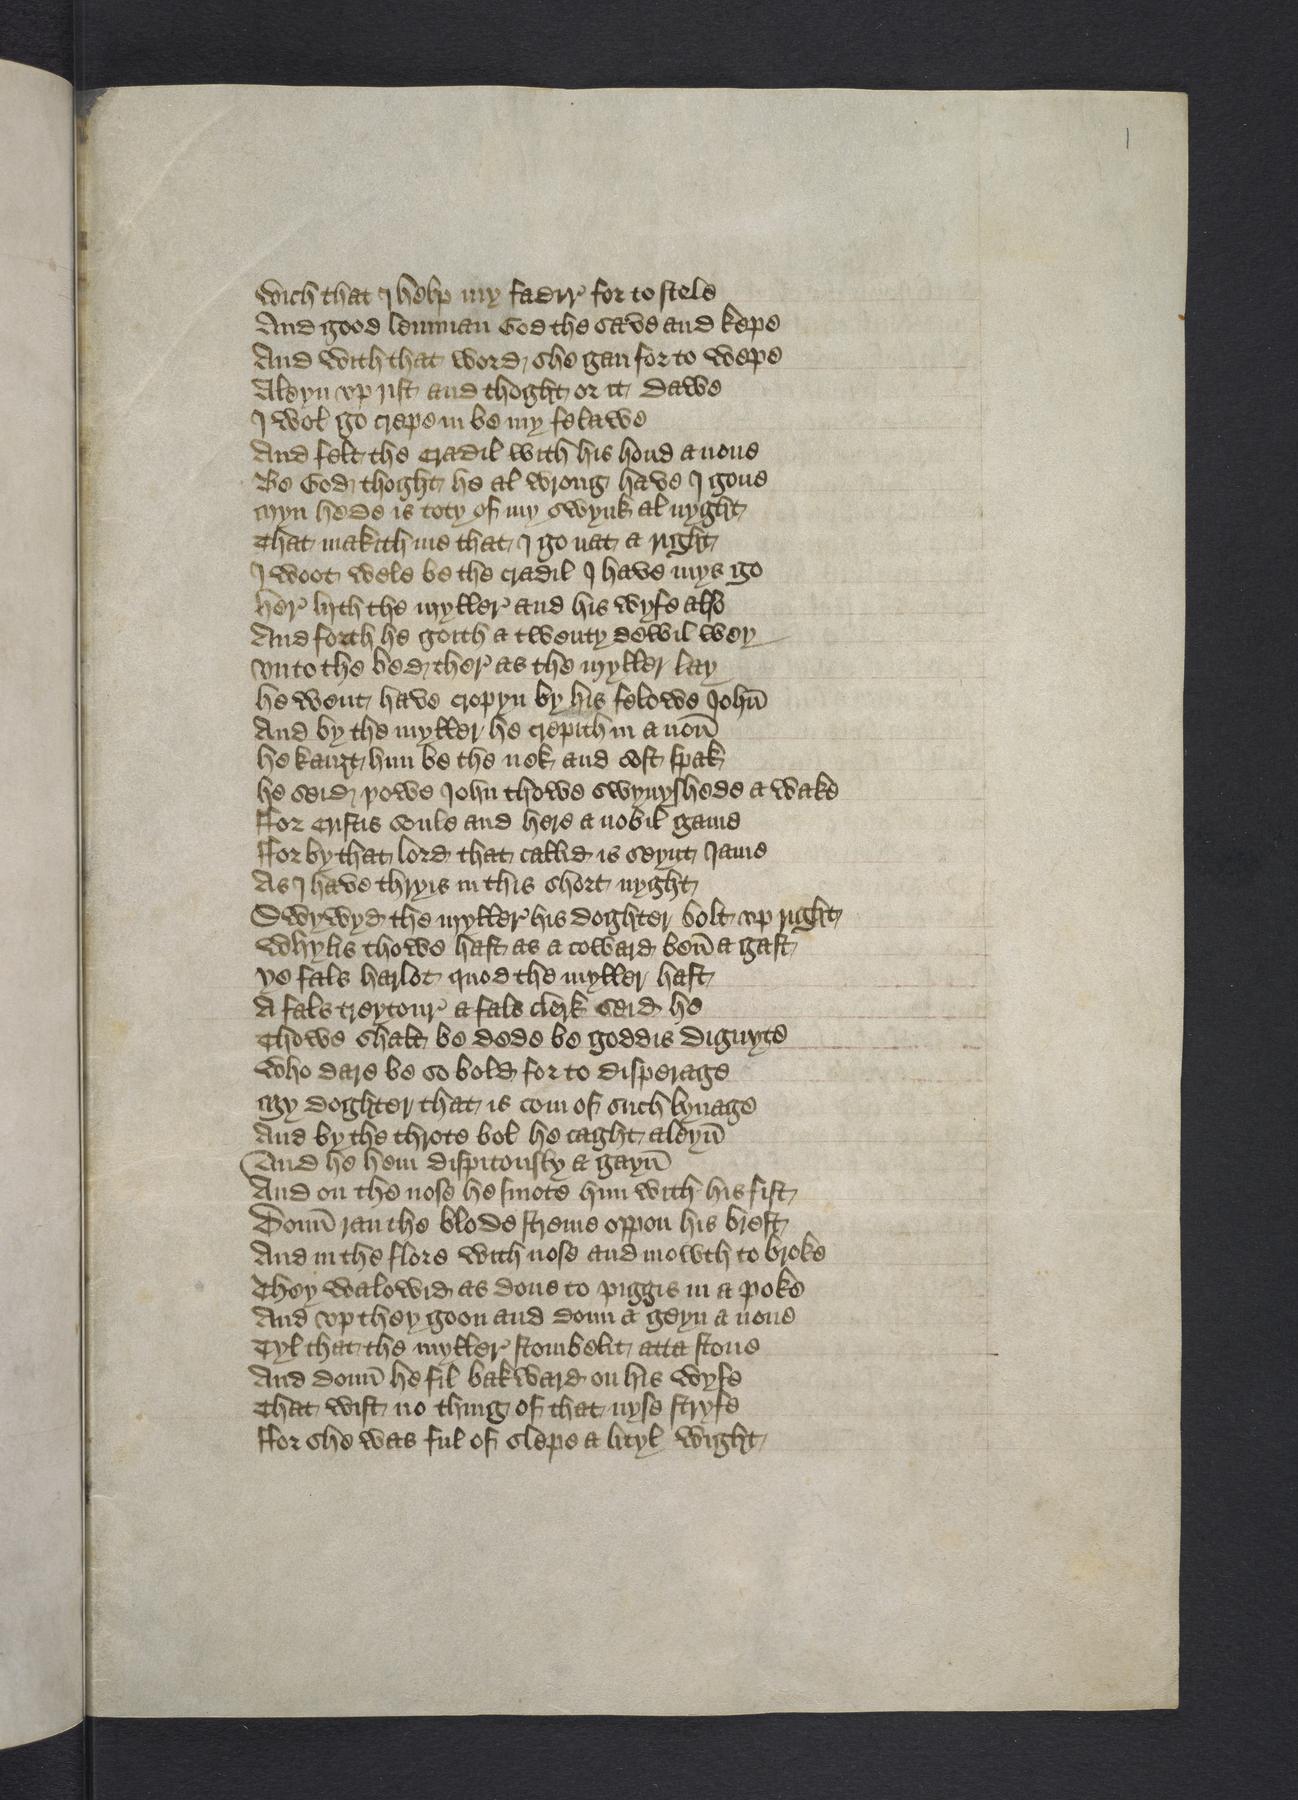 1
Wich that I help my fadrr for to stele
And good lemman God the save and kepe
And with that word she gan for to wepe
Aleyn vp rist and thoght or it dawe
I wol go crepe in be my felawe
And felt the cradil with his hond a none
Be God thoght he al wrong have I gone
Myn hede is toty of my swynk al nyght
That makith me that I go nat a right
I woot wele be the cradil I have mys go
Her lyth the myller and his wyfe also
And forth he goith a twenty dewil wey
Vnto the bed ther as the myller lay
He went have cropyn by his felowe John
And by the myller he crepith in a non
He kaugt him be the nek and soft spak
He seid yowe John thowe swynyshede a wake
Ffor cristis soule and here a nobil game
Ffor by that lord that callid is seynt Jame
As I have thryis in this short nyght
Swywyd the myller his doghter bolt vp right
Whylis thowe hast as a coward ben a gast
Ye fals harlot quod the myller hast
A fals treytour a fals clerk seid he
Thowe shalt be dede be goddis dignyte
Who dare be so bold for to disperage
My doghter that is com of such lynage
And by the throte bol he caght aleyn
And he hem dispitously a gayn
And on the nose he smote him with his fist
Doun ran the blode streme oppon his brest
And in the flore with nose and mowth to broke
They walowid as done to piggis in a poke
And vp they goon and doun a geyn a none
Tyl that the myller stombelit atta stone
And doun he fil bakward on his wyfe
That wist no thing of that nyse stryfe
Ffor she was ful of slepe a lityl wight